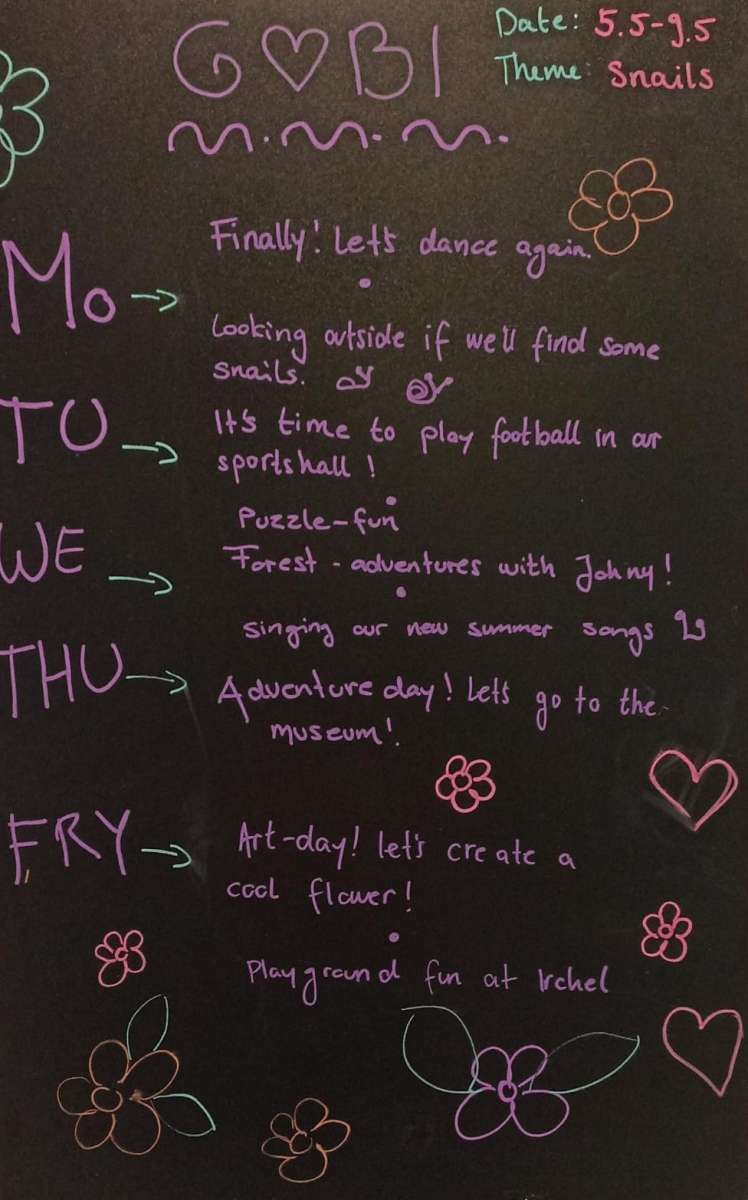 GOBI
Date: 5.5-9.5
Theme: Snails
Mo
Finally! Let's dance again.
Looking outside if we'll find some
snails.
TU
It's time to play football in our
sportshall!
Puzzle-fun
WE
Forest-adventures with Johny!
singing our new summer songs
THU
Adventure day! Let's go to the
museum!
FRY
Art-day! let's create a
cool flower!
Playground fun at Irchel